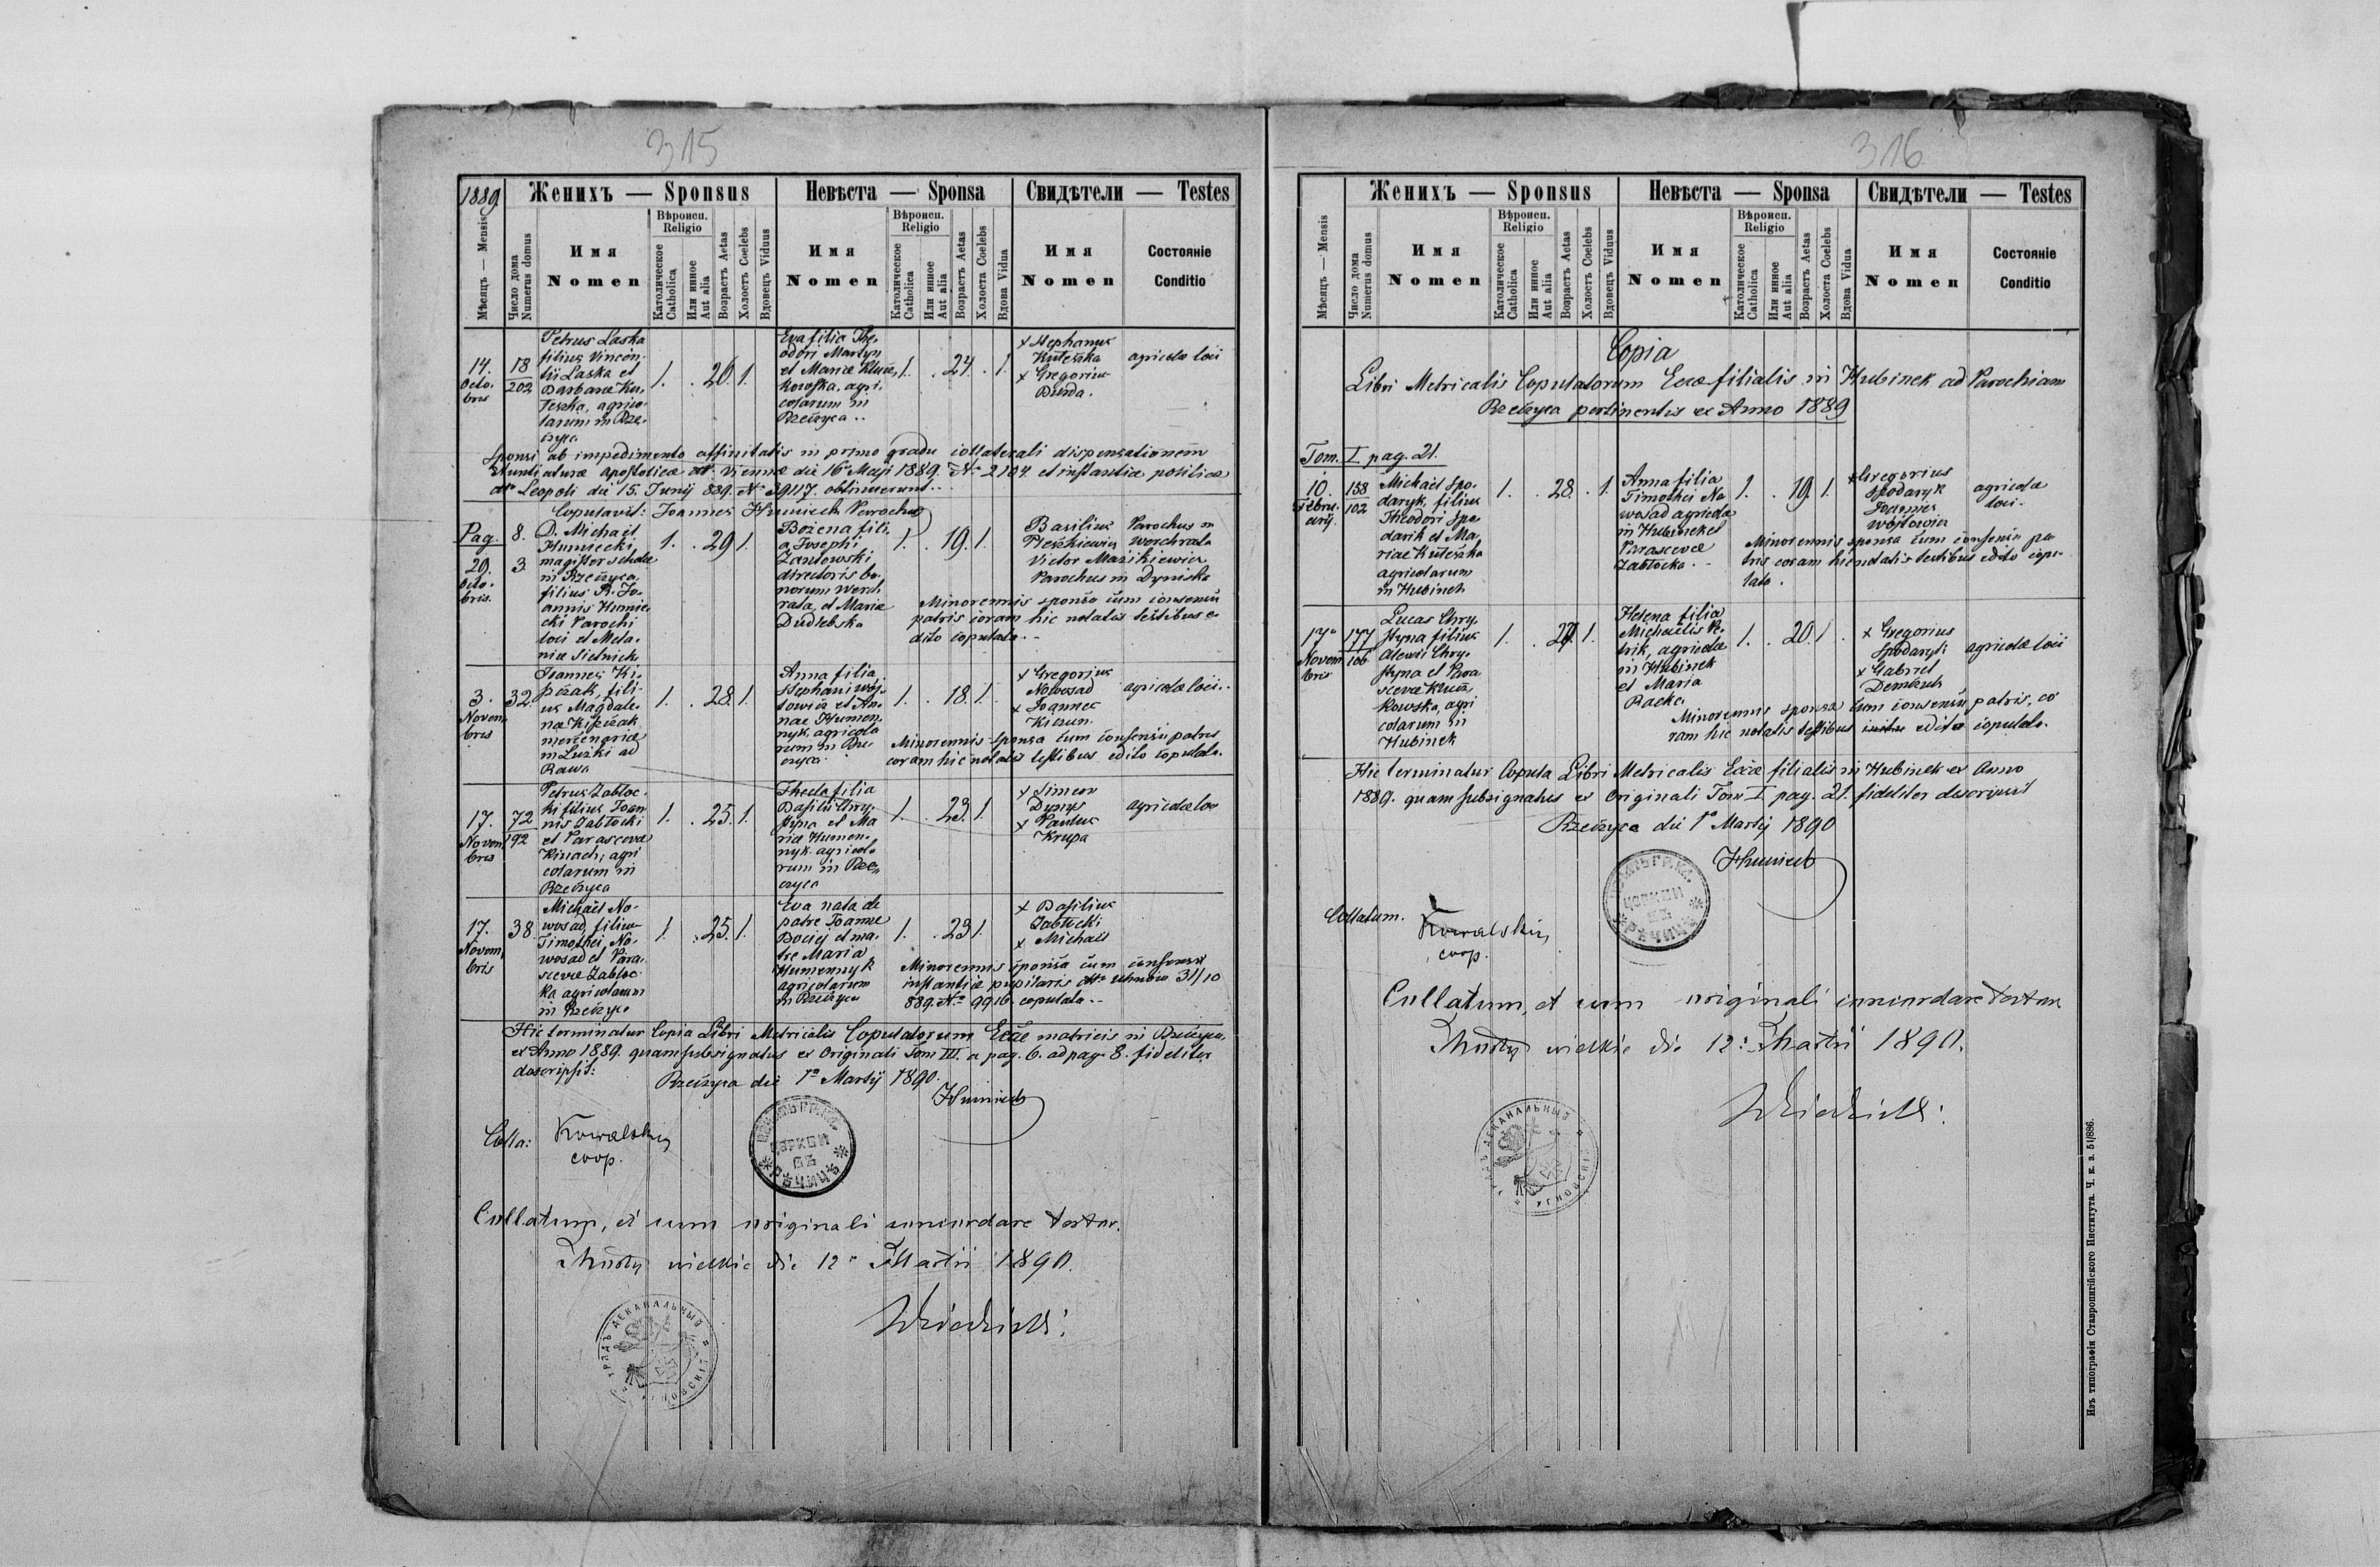 315
1889
Женихъ — Sponsus
Невѣста — Sponsa
Свидѣтели — Testes
Мѣсяцъ — Mensis
Число дома
Numerus domus
Имя
Nomen
Вѣроисп.
Religio
Католическое
Catholica
Или инное
Aut alia
Возрастъ Aetas
Холостъ Coelebs
Вдовецъ Viduus
Имя
Nomen
Вѣроисп.
Religio
Католическое
Catholica
Или инное
Aut alia
Возрастъ Aetas
Холоста Coelebs
Вдова Vidua
Имя
Nomen
Состояніе
Conditio
14.
Octo-
bris
18
202
Petrus Laska
filius Vincen-
tii Laska et
Barbarae Ku-
teszka, agrico-
larum in Rze-
czyca
1. . 26 1.
Eva filia The-
odori Martyn
et Mariae Klucz-
kowska, agri-
colarum in
Rzeczyca
1. . 24 . 1.
+ Stephanus
Kuteszka
+ Gregorius
Durda.
agricolae loci
Sponsi ab impedimento affinitatis in primo gradu collaterali dispensationem
Nuntiaturae Apostolicae dto Viennae die 16a Maji 1889. No 2104 et instantiae politicae
dto Leopoli die 15. Junij 889. No 39117. obtinuerunt.
Copulavit: Joannes Humiecki Parochus
Pag. 8.
29.
Octo-
bris.
3
D. Michael
Humiecki
magister scholae
in Rzeczyca,
filius R. Jo-
annis Humie-
cki Parochi
loci et Mela-
niae Sielnick
1. . 29 1.
Bożena fili-
a Josephi
Zantowski
directoris bo-
norum Werch-
rata, et Maria
Dudlebska
1. . 19. 1.
Basilius
Pleszkiewicz
Victor Mazikiewicz
Parochus in
Werchrata
Parochus in Dyniska
Minorennis sponsa cum consensu
patris coram hic notatis testibus e-
dito copulata.
3.
Novem-
bris
32.
Joannes Ki-
pczak, fili-
us Magdale-
nae Kipczak
mercenariae
in Lużki ad
Rawa
1. . 28. 1.
Anna filia
Stephani Woj-
towicz et An-
nae Humen-
nyk, agricola-
rum in Rze-
czyca
1. . 18. 1.
+ Gregorius
Nowosad
+ Joannes
Kiszun.
agricolae loci.
Minorennis sponsa cum consensu patris
coram hic notatis testibus edito copulata.
17.
Novem-
bris
72
192
Petrus Zabloc-
ki filius Joan-
nis Zablocki
et Parascevae
Kinach, agri-
colarum in
Rzeczyca
1. . 25. 1.
Thecla filia
Basilii Chry-
styna et Ma-
riae Humen-
nyk agricola-
rum in Rze-
czyca
1. . 23. 1.
+ Simeon
Dynys
+ Paulus
Krupa
agricolae loci
17.
Novem-
bris
38.
Michael No-
wosad, filius
Timothei No-
wosad et Para-
scevae Zabloc-
ka agricolarum
in Rzeczyca
1. . 25. 1.
Eva nata de
patre Joanne
Bociej et ma-
tre Maria
Humennyk
agricolarum
in Rzeczyca
1. . 23 1.
+ Basilius
Zablocki
+ Michael
Minorennis sponsa cum consensu
instantiae pupilaris dto Uhnow 31/10
889. No 9916. copulata.
Hic terminatur Copia Libri Metricalis Copulatorum Eccae matricis in Rzeczyca
ex Anno 1889. quam subsignatus ex Originali Tom III. a pag. 6. ad pag. 8. fideliter
descripsit:
Rzeczyca die 1a Martij 1890.
Humiecki
Colla: Kowalski,
coop.
Collatum, et cum originali concordare testor.
Mosty wielkie die 12a Martii 1890.
316
Женихъ — Sponsus
Невѣста — Sponsa
Свидѣтели — Testes
Мѣсяцъ — Mensis
Число дома
Numerus domus
Имя
Nomen
Вѣроисп.
Religio
Католическое
Catholica
Или инное
Aut alia
Возрастъ Aetas
Холостъ Coelebs
Вдовецъ Viduus
Имя
Nomen
Вѣроисп.
Religio
Католическое
Catholica
Или инное
Aut alia
Возрастъ Aetas
Холоста Coelebs
Вдова Vidua
Имя
Nomen
Состояніе
Conditio
Copia
Libri Metricalis Copulatorum Eccae filialis in Hubinek ad Parochiam
Rzeczyca pertinentis ex Anno 1889
Tom. I pag. 21.
10.
Febru-
arij.
158
102
Michael Spo-
daryk, filius
Theodori Spo-
darik et Ma-
riae Kuteszka
agricolarum
in Hubinek
1. . 28. . 1.
Anna filia
Timothei No-
wosad agricolae
in Hubinek et
Parascevae
Zablocka.
1. . 19. 1.
+ Gregorius
Spodaryk
Joannes
Wojtowicz
agricolae
loci.
Minorennis sponsa cum consensu pa-
tris coram hic notatis testibus edito copu-
lata.
17a
Novem-
bris
177
106
Lucas Chry-
styna filius
Alexii Chry-
styna et Para-
scevae Klucz-
kowska, agri-
colarum in
Hubinek
1. . 27. 1.
Helena filia
Michaelis Pe-
trik, agricolae
in Hubinek
et Maria
Racka.
1. . 20. 1.
+ Gregorius
Spodaryk
+ Gabriel
Demczuk
agricolae loci
Minorennis sponsa cum consensu patris, co-
ram hic notatis testibus edito copulata.
Hic terminatur Copula Libri Metricalis Eccae filialis in Hubinek ex Anno
1889. quam subsignatus ex Originali Tom I pag. 21. fideliter descripsit
Rzeczyca die 1a Martij 1890
Humiecki
Collatum. Kowalski,
coop.
Collatum, et cum originali concordare testor
Mosty wielkie die 12a Martii 1890.
Изъ типографіи Ставропигійского Института. Ч. к. з. 51/886.